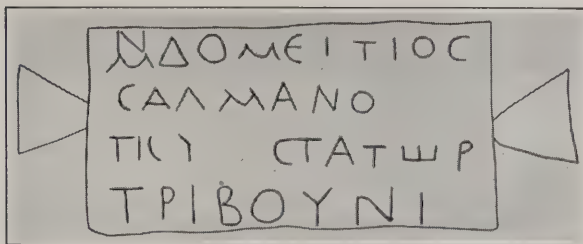 ΜΔΟΜΕΙΤΙΟϹ
ϹΑΛΜΑΝΟ
ΤΙϹΥ ϹΤΑΤѠΡ
ΤΡΙΒΟΥΝΙ